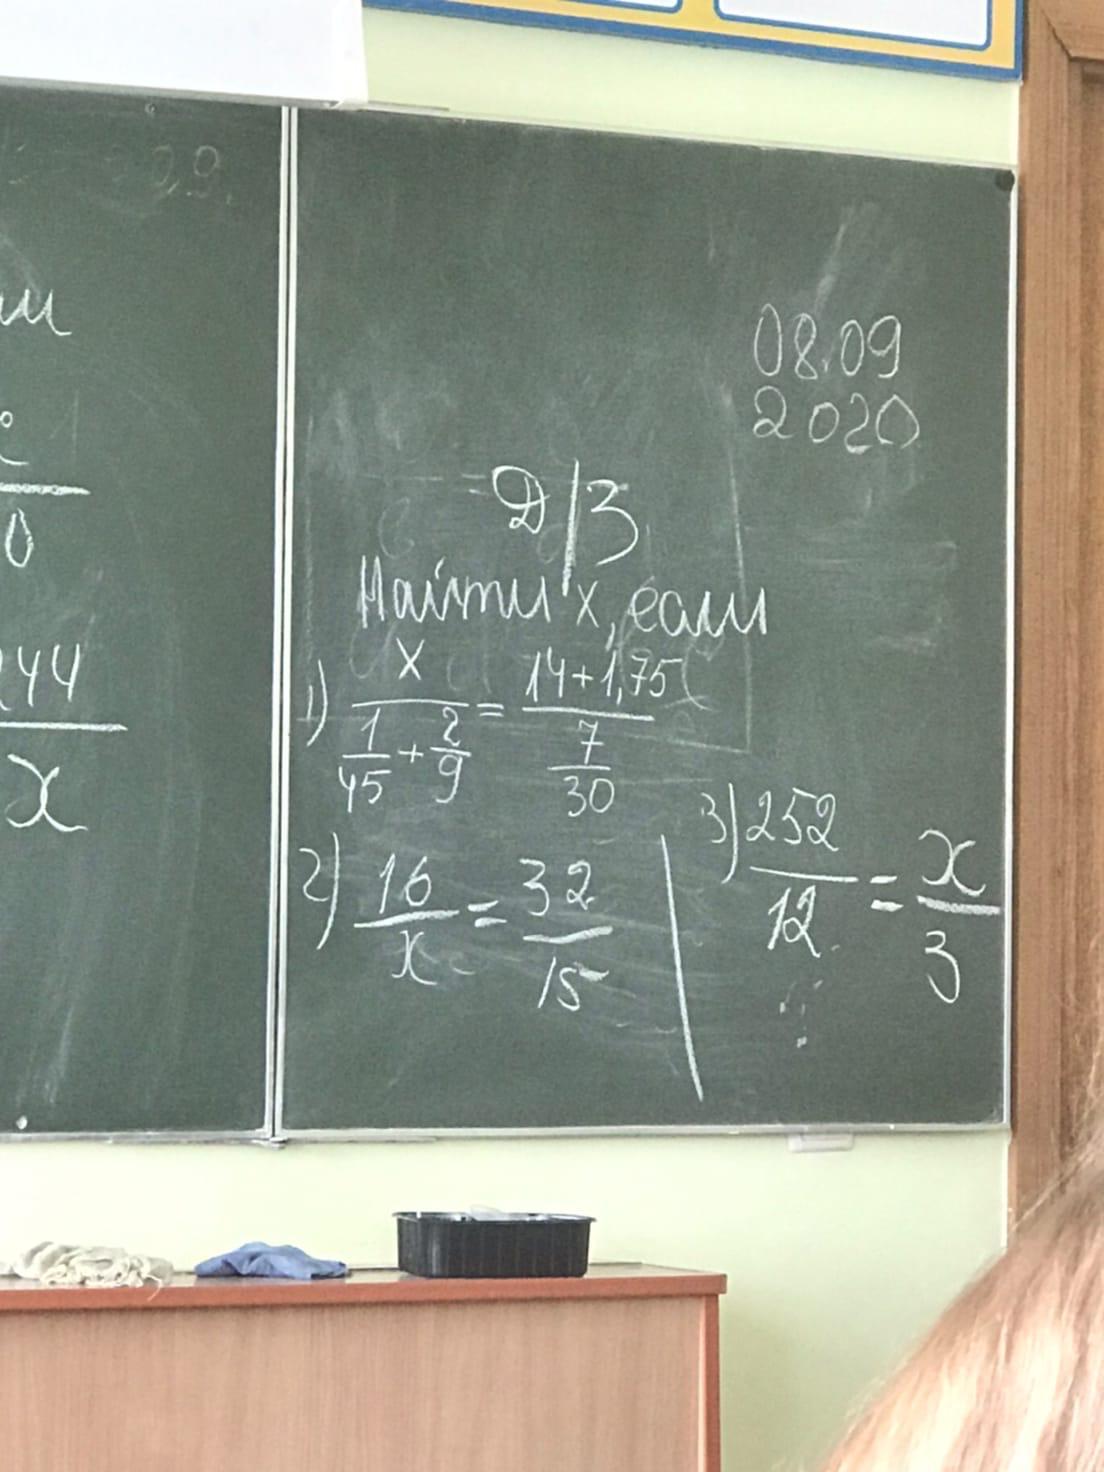 09.
ш
0
244
x
08.09
2020
Д/З
Найти x, если
1) x/(1/45 + 2/9) = (14+1,75)/(7/30)
2) 16/x = 32/15
3) 252/12 = x/3